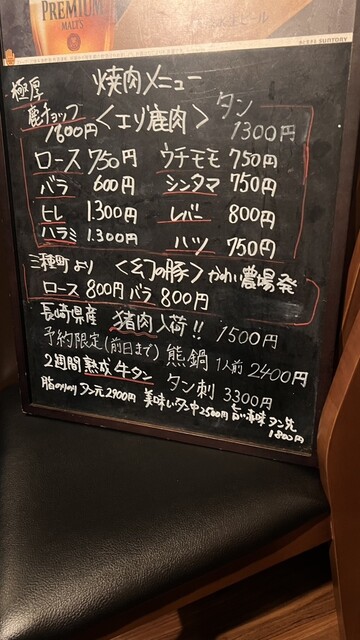 PREMIUM
MALT'S
SUNTORY
焼肉メニュー
極厚
鹿チョップ 1800円
〈エゾ鹿肉〉
タン 1300円
ロース 750円 ウチモモ 750円
バラ 600円 シンタマ 750円
ヒレ 1.300円 レバー 800円
ハラミ 1.300円 ハツ 750円
三種町より 〈幻の豚〉かわい農場発
ロース 800円 バラ 800円
長崎県産 猪肉入荷!! 1500円
予約限定(前日まで) 熊鍋 1人前 2400円
2週間熟成牛タン タン刺 3300円
脂のりのり タン元 2900円 美味しいタン中 2500円 旨い赤味 タン先
1800円